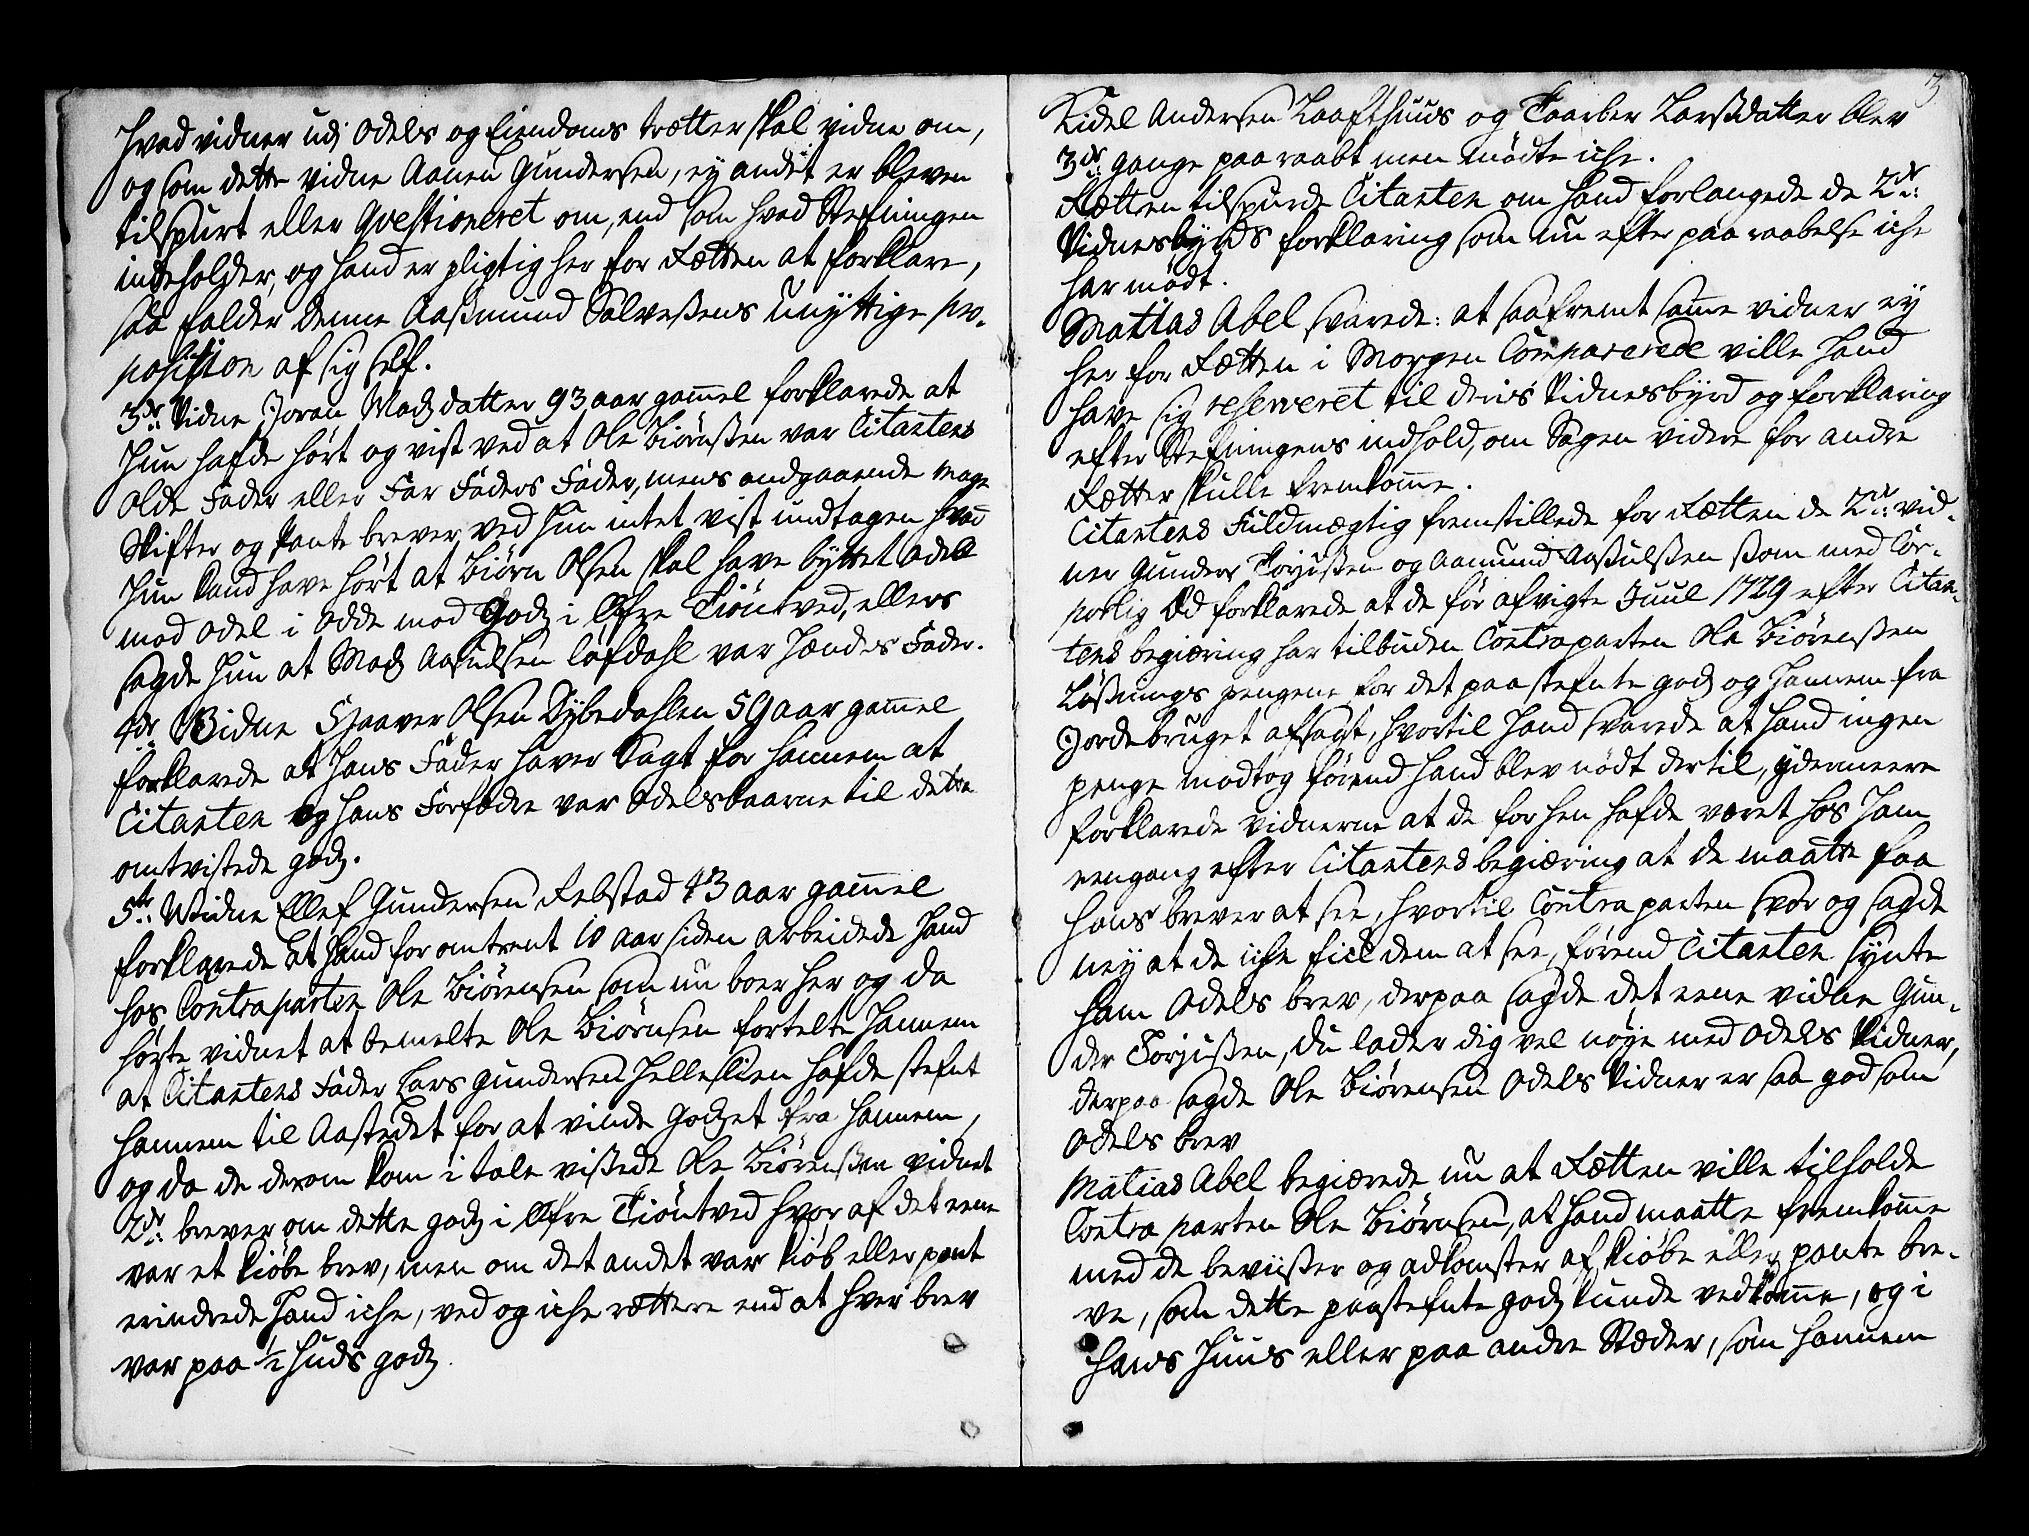 hvad vidner udj Odels og Eiendoms trætter skal vidne om,
og som dette vidne Aanen Gundersen, ey andet er bleven
tilspurt eller Qvestioneret om, end som hvad Stefningen
indeholder, og hand er pligtig her for Retten at forklare,
saa falder denne Aaßmund Salveßens unyttige pro-
position af sig self.
3de: Vidne Joran Madzdatter 93 aar gamel forklarede at
hun hafde hørt og vist ved at Ole Biörnßen var Citantens
Olde Fader eller Far Faders Fader, mens andgaaende mage
Skifter og pante brever ved hun intet vist undtagen hvad
hun kand have hørt at Biørn Olsen skal have byttet odell
mod odel i Odde mod Godz i Øfre Tiöntved, ellers
sagde hun at Madz Aasulsen løfdahl var hændes Fader.
4de Vidne Sjaaver Olsen Dybedahlen 59 aar gamel
forklarede at hans Fader haver Sagt for hannem at
Citanten og hans Forfædre var Odelsbaarne til dette
omtvistede godz.
5te: Vidne Ellef Gundersen Rebstad 43 aar gamel
forklarede at hand for omtrent 10 aar siden arbeidede hand
hos Contraparten Ole Biörensen som nu boer her og da
hørte vidnet at bemelte Ole Biörnsen fortelte hannem
at Citantens Fader Lars Gundersen Helleslien hafde stefnt
hannem til Aastedet for at vinde Godzet fra hannem,
og da de derom kom i tale vißede Ole Biörenßen vidnet
2de: brever om dette godz i Øfre Tiöntved hvor af det eene
var et kiöbe brev, men om det andet var kiöb eller pant
erindrede hand iche, ved og iche rættere end at hver brev
var paa 1/2 huds godz.
3
Kidel Andersen Laafthuus og Taarber Larßdatter blev
3de: gange paaraabt men mödte iche.
Rætten tilspurde Citanten om hand forlangede de 2de:
Vidnesbyrds forklaring som nu efter paaraabelse iche
har mødt.
Matias Abel svarede: at saafremt same vidner ey
her for Rætten i Morgen Comparerede ville hand
have sig reserveret til deris Vidnesbyrd og forklaring
efter Stefningens indhold, om Sagen videre for andre
Rætter skulle fremkomme.
Citantens Fuldmægtig fremstillede for Rætten de 2de: vid-
ner Gunder Torjußen og Aanund Aaßulßen som med Cor-
porlig Æd forklarede at de før afvigte Juul 1729 efter Citan-
tens begiæring har tilbuden Contraparten Ole Biörenßen
Løßnings pengene for det paastefnte godz og hannem fra
Jordebruget afsagt, hvortil hand svarede at hand ingen
penge modtog förend hand blev nödt dertil, ydermeere
forklarede vidnerne at de forhen hafde været hos ham
eengang efter Citantens begiæring at de maatte faa
hans brever at see, hvortil Contraparten svor og sagde
ney at de iche fich dem at see, förend Citanten synte
ham Odels brev, derpaa sagde det eene vidne Gun-
der Torjußen, du lader dig vel nøye med Odels Vidner,
derpaa sagde Ole Biörensen Odels Vidner er saa god som
Odels brev
Matias Abel begiærede nu at Rætten ville tilholde
Contra parten Ole Biörnsen, at hand maatte fremkomme
med de beviißer og adkomster af kiöbe eller pante bre-
ve, som dette paastefnte godz kunde vedkomme, og i
hans huus eller paa andre Stæder, som hannem